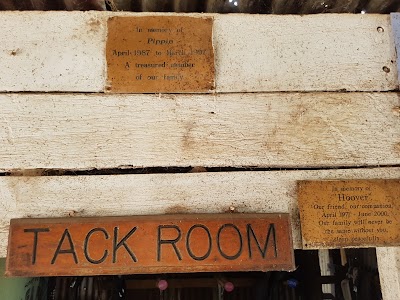 In memory of
Pippin
April 1987 to March
A treasured member
of our family
In memory of
'Hoover'
Our friend, our companion
April 1977 - June 2000.
Our family will never be
the same without you.
peacefully
TACK ROOM